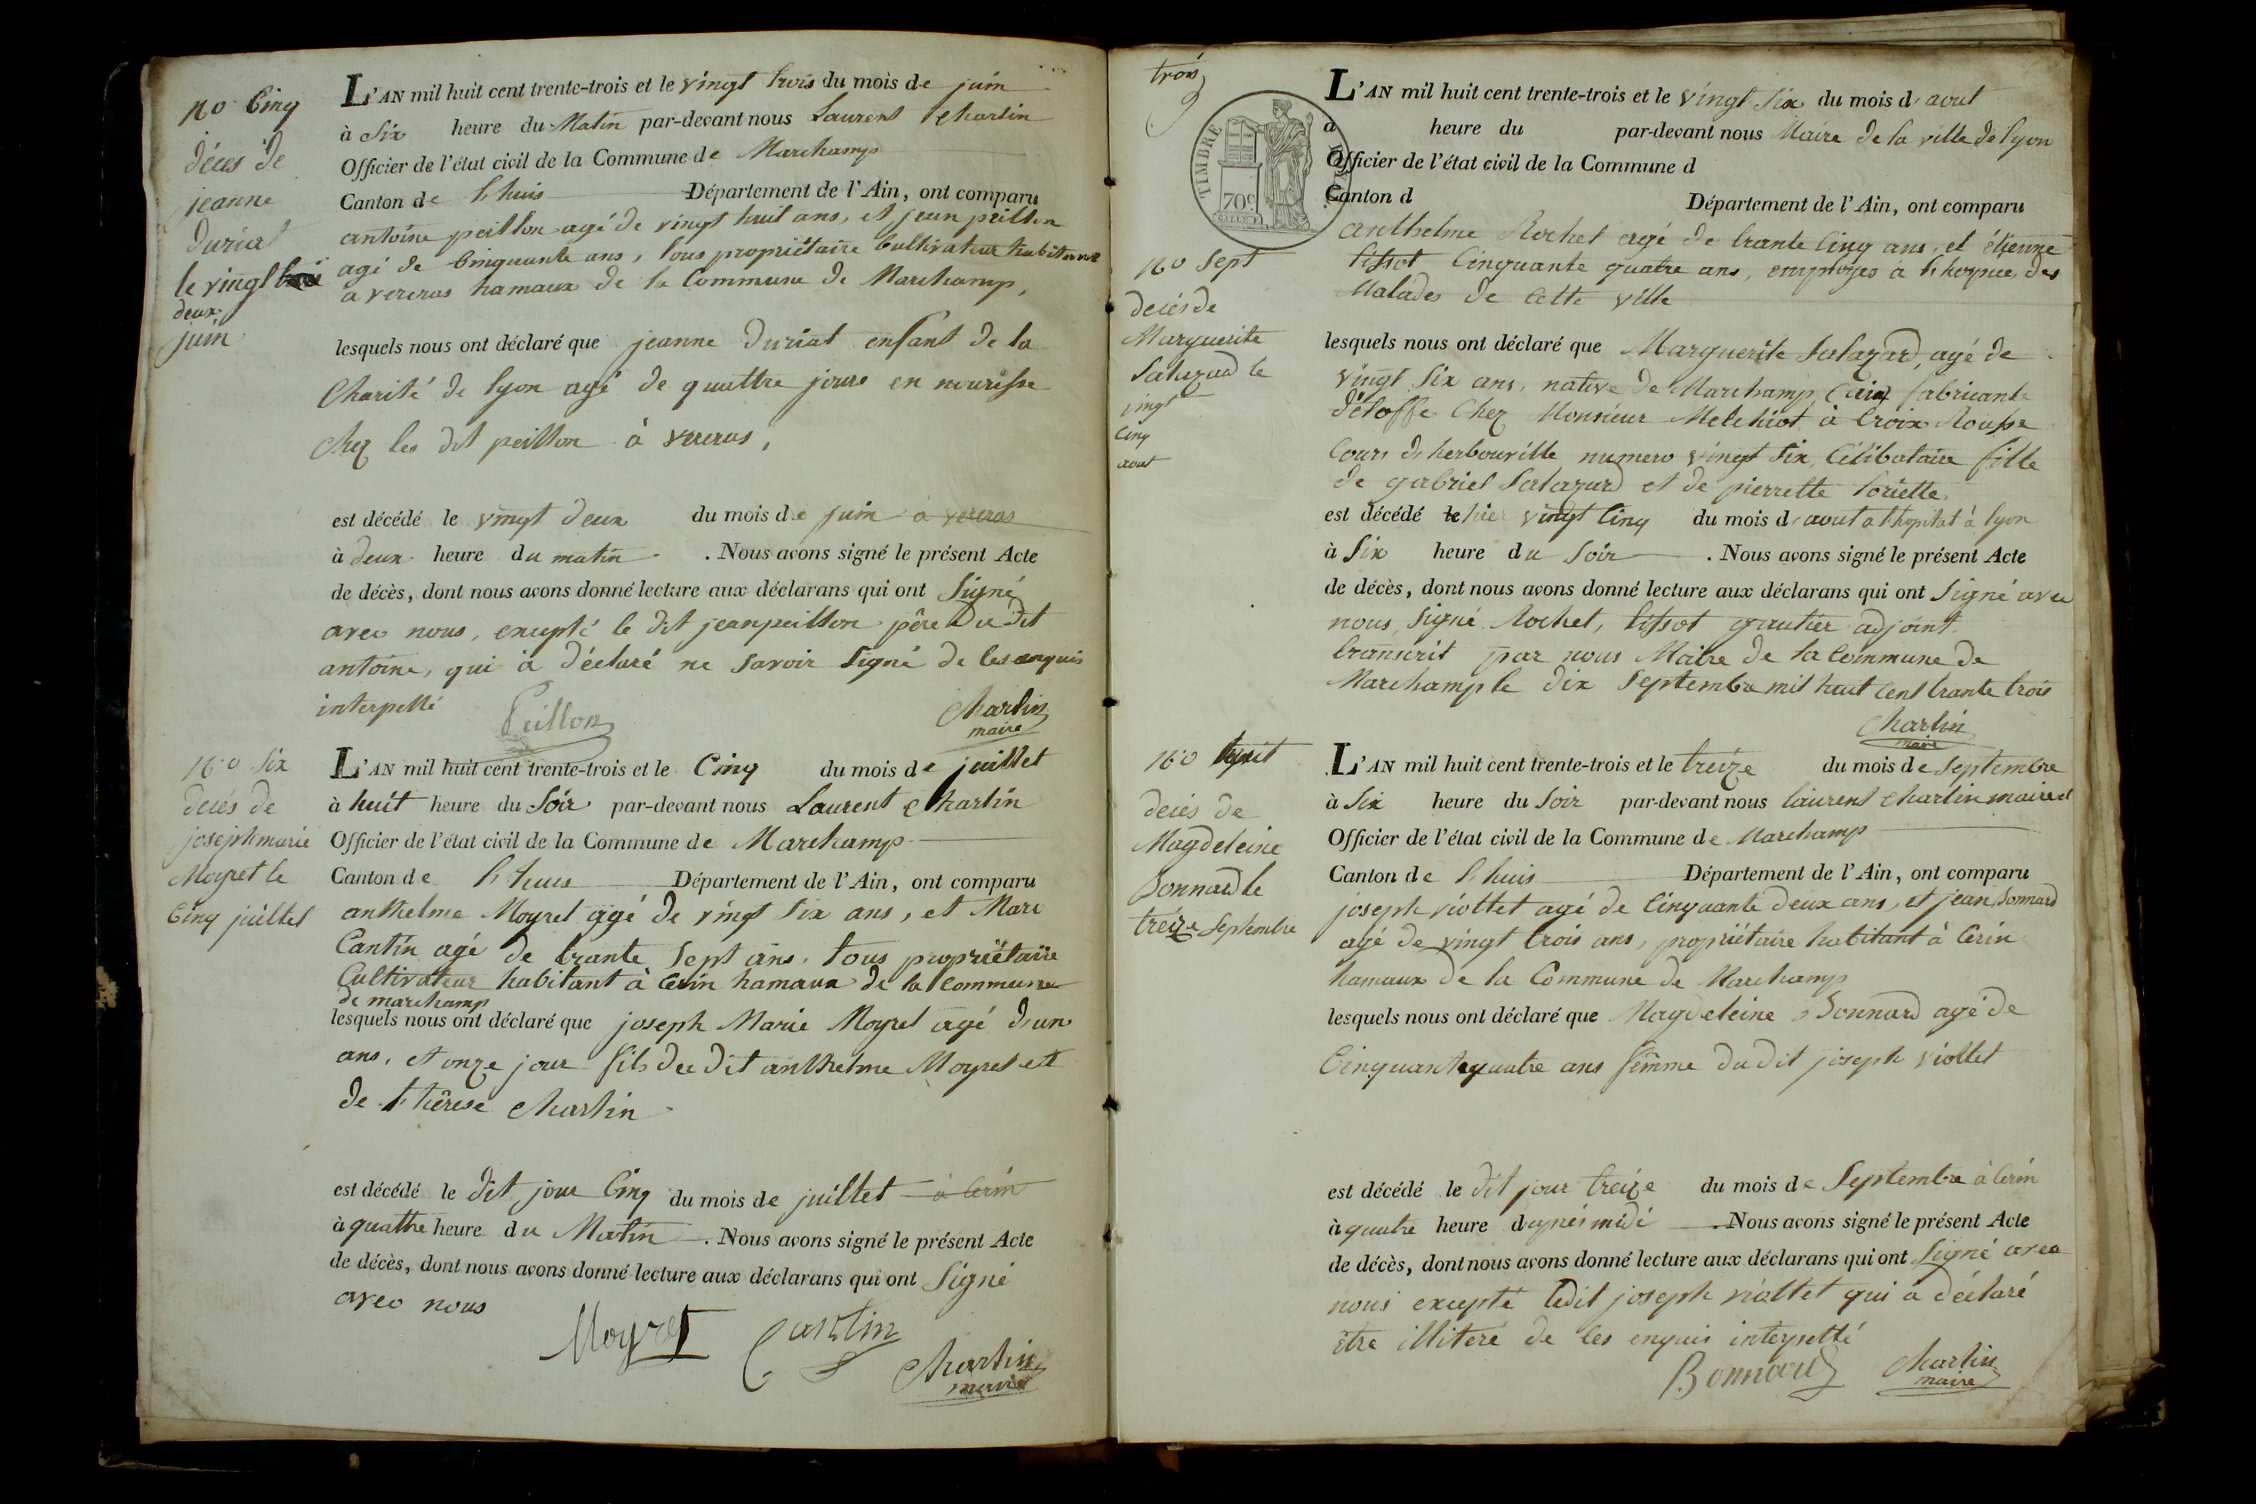 no Cinq
déces de
jeanne
duriat
le vingt
deux
juin
L'AN mil huit cent trente-trois et le vingt trois du mois de juin
à Six heure du Matin par-devant nous Laurent Charlin
Officier de l'état civil de la Commune de Marchamp
Canton de Lhuis Département de l'Ain, ont comparu
antoine peillon agé de vingt huit ans, et jean peillon
agé de Cinquante ans, tous propriétaire Cultivateur habitant
a vereras hamaux de la Commune de Marchamp,
lesquels nous ont déclaré que jeanne duriat enfant de la
Charité de lyon agé de quattre jours en nourisse
chez les dit peillon à vereras,
est décédé le vingt deux du mois de juin a vereras
à deux heure du matin . Nous avons signé le présent Acte
de décès, dont nous avons donné lecture aux déclarans qui ont Signé
avec nous, excepté le dit jean peillon père du dit
antoine, qui à déclaré ne savoir signé de les enquis
interpellé
Peillon
Charlin
maire
no Six
decés de
joseph marie
Moyret le
Cinq juillet
L'AN mil huit cent trente-trois et le Cinq du mois de juillet
à huit heure du Soir par-devant nous Laurent Charlin
Officier de l'état civil de la Commune de Marchamp
Canton de Lhuis Département de l'Ain, ont comparu
anthelme Moyret agé de vingt Six ans, et Marc
Cantin agé de trante Sept ans, tous propriëtaire
Cultivateur habitant à Cerin hamaux de la Commune
de marchamp
lesquels nous ont déclaré que joseph Marie Moyret agé d'un
ans, et onze jour fils du dit anthelme Moyret et
de thérese Charlin
est décédé le dit jour Cinq du mois de juillet à Cerin
à quattre heure du Matin . Nous avons signé le présent Acte
de décès, dont nous avons donné lecture aux déclarans qui ont Signé
avec nous
Moyret
Cantin
Charlin
maire
trois
TIMBRE
70c
no Sept
decés de
Marguerite
Salazard le
vingt
Cinq
aout
L'AN mil huit cent trente-trois et le vingt Six du mois d'aout
à heure du par-devant nous Maire de la ville de lyon
Officier de l'état civil de la Commune d
Canton d Département de l'Ain, ont comparu
anthelme Rochet agé de trante Cinq ans, et étienne
tissot Cinquante quatre ans, employes à l'hopice des
Malades de Cette ville
lesquels nous ont déclaré que Marguerite Salazard, agé de
vingt Six ans, native de Marchamp (ain) fabricante
d'étoffe Chez Monsieur Melchiot à Croix Rousse
Cours d'herbouville numero vingt Six, Célibataire fille
de gabriel Salazard et de pierrette toriette,
est décédé le hier vingt Cinq du mois d'aout a l'hopital à lyon
à Six heure du Soir . Nous avons signé le présent Acte
de décès, dont nous avons donné lecture aux déclarans qui ont Signé avec
nous, Signé Rochet, tissot gautier adjoint.
transcrit par nous Maire de la Commune de
Marchamp le dix Septembre mil huit Cent trante trois
Charlin
maire
no huit
decés de
Magdeleine
Bonnard le
treize Septembre
L'AN mil huit cent trente-trois et le treize du mois de Septembre
à Six heure du Soir par-devant nous laurent Charlin maire et
Officier de l'état civil de la Commune de Marchamp
Canton de Lhuis Département de l'Ain, ont comparu
joseph viollet agé de Cinquante deux ans, et jean Bonnard
agé de vingt trois ans, propriétaire habitant à Cerin
hamaux de la Commune de Marchamp
lesquels nous ont déclaré que Magdeleine Bonnard agé de
Cinquante quatre ans femme du dit joseph viollet
est décédé le dit jour treize du mois de Septembre à Cerin
à quatre heure d'après midi . Nous avons signé le présent Acte
de décès, dont nous avons donné lecture aux déclarans qui ont Signé avec
nous excepté ledit joseph viollet qui a déclaré
être illiteré de les enquis interpellé
Bonnard
Charlin
maire